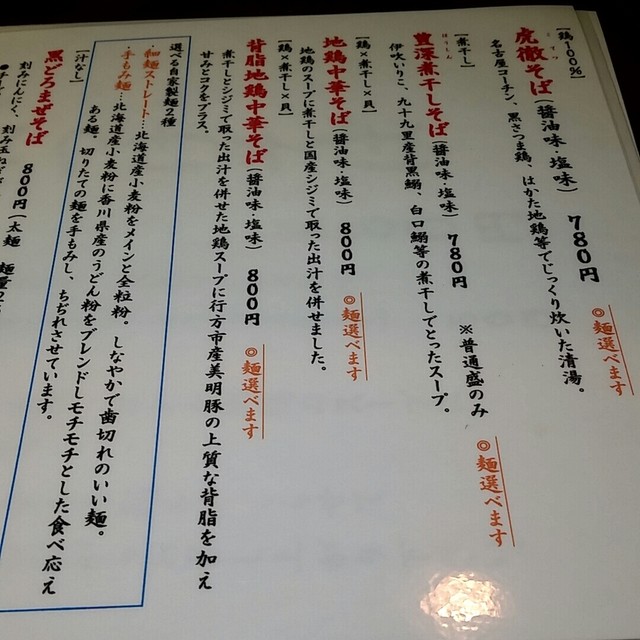 【鶏100%】
虎徹そば(醤油味・塩味) 780円 ◎麺選べます
名古屋コーチン、黒さつま鶏、はかた地鶏等でじっくり炊いた清湯。
【煮干し】
豊深煮干しそば(醤油味・塩味) 780円 ※普通盛のみ ◎麺選べます
伊吹いりこ、九十九里産背黒鰯、白口鰯等の煮干しでとったスープ。
【鶏×煮干し×貝】
地鶏中華そば(醤油味・塩味) 800円 ◎麺選べます
地鶏のスープに煮干しと国産シジミで取った出汁を併せました。
【鶏×煮干し×貝】
背脂地鶏中華そば(醤油味・塩味) 800円 ◎麺選べます
煮干しとシジミで取った出汁を併せた地鶏スープに行方市産美明豚の上質な背脂を加え
甘みとコクをプラス。
選べる自家製麺2種
・細麺ストレート…北海道産小麦粉をメインと全粒粉。しなやかで歯切れのいい麺。
・手もみ麺…北海道産小麦粉に香川県産のうどん粉をブレンドしモチモチとした食べ応え
ある麺、切りたての麺を手もみし、ちぢれさせています。
【汁なし】
黒どろまぜそば 800円(太麺
刻みにんにく、刻み玉ねぎ